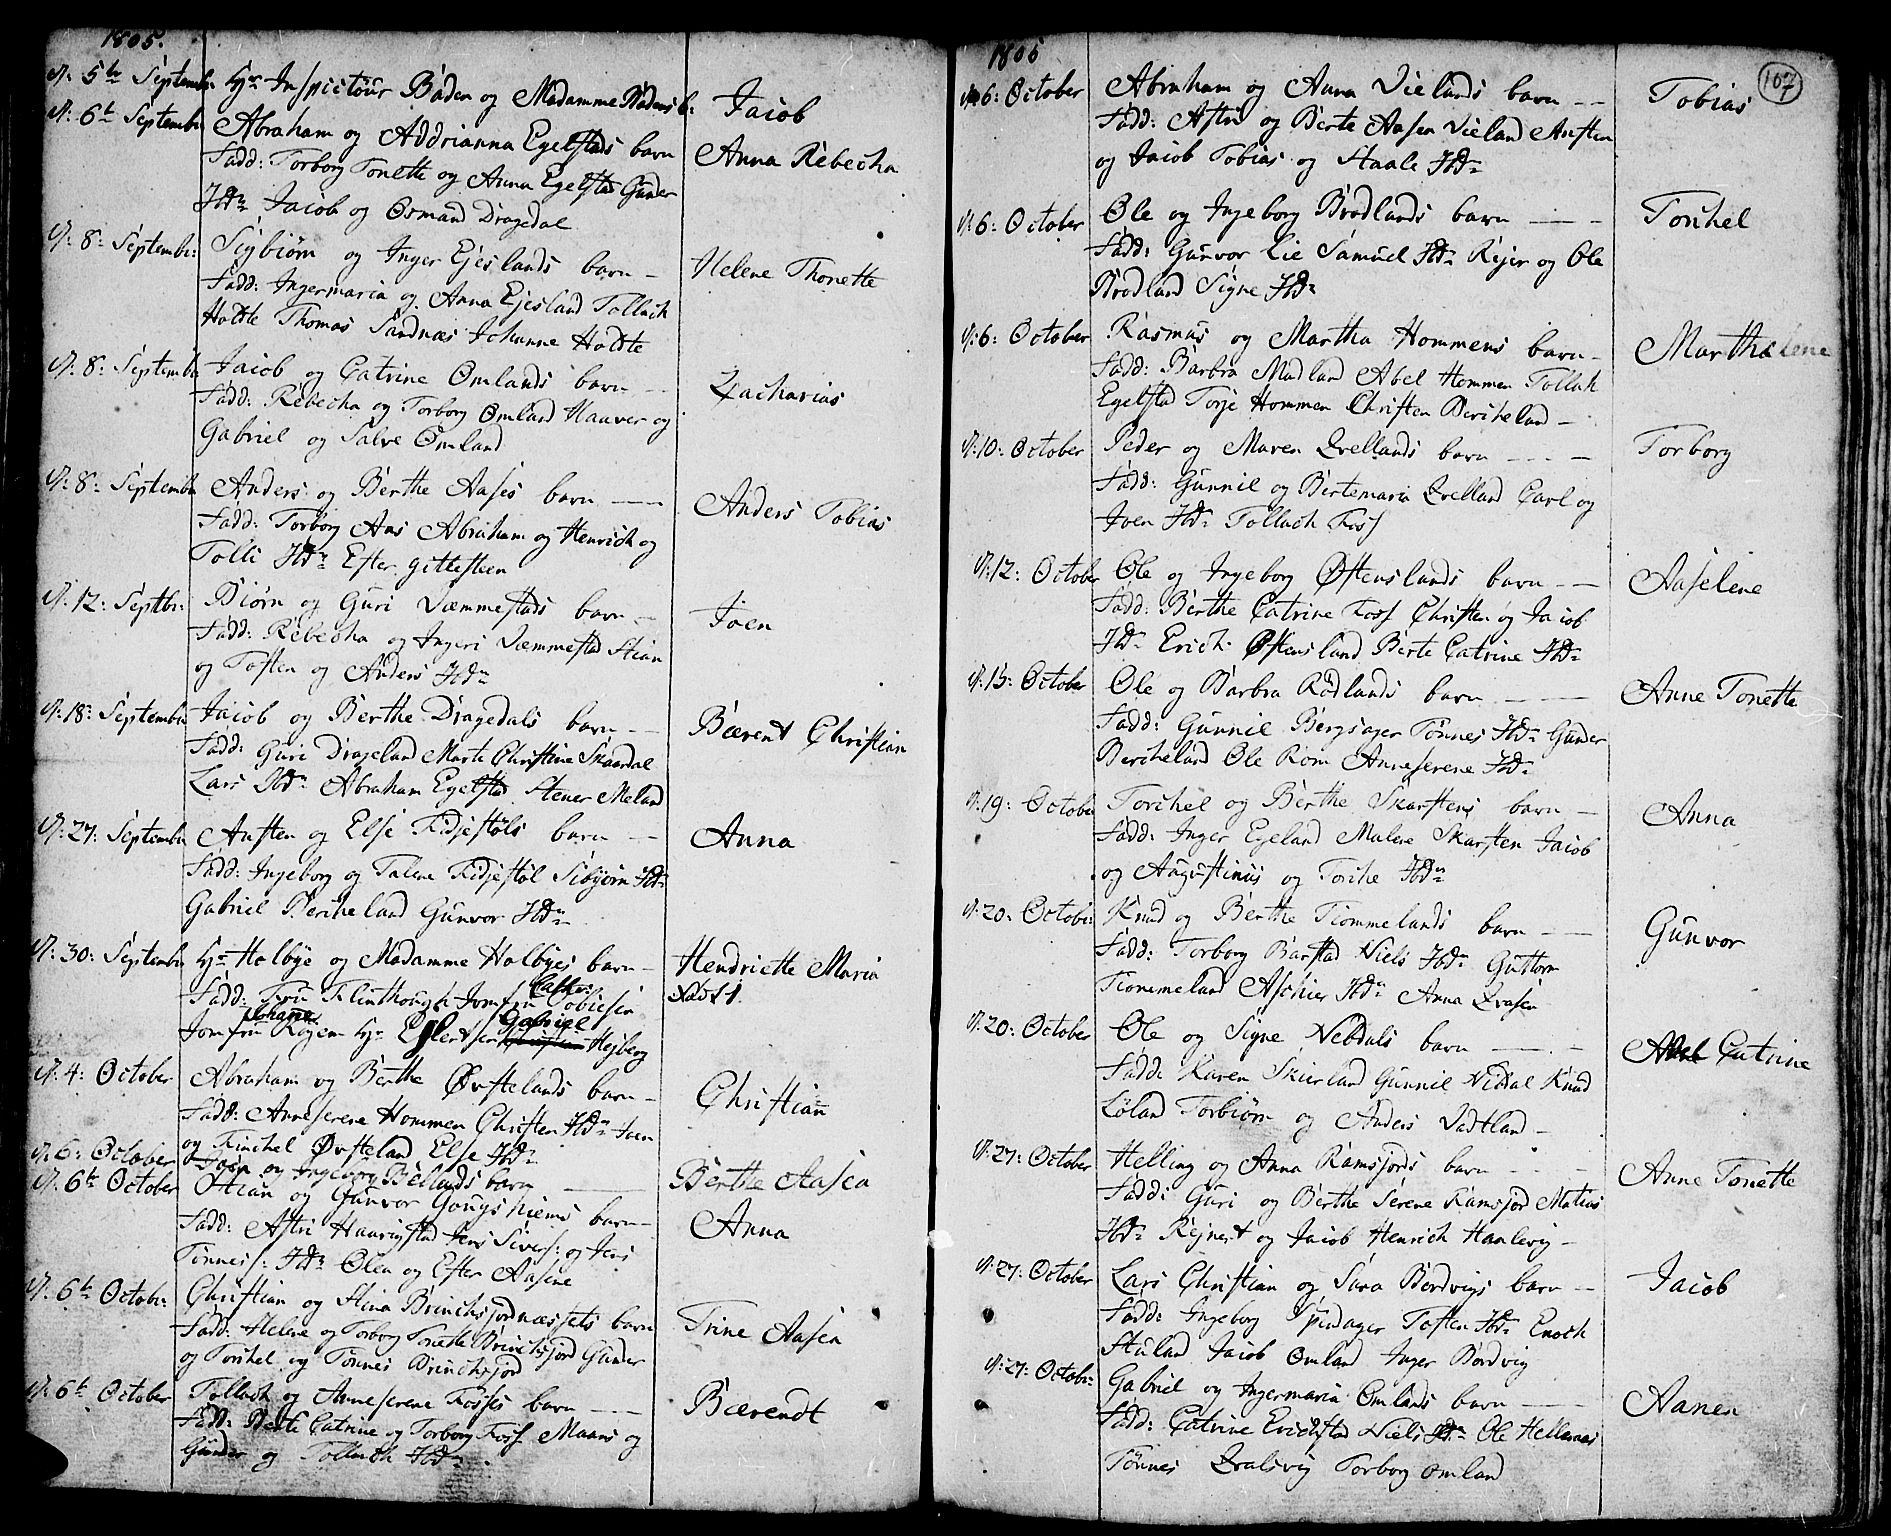 1805.
d: 5te Septembr Hr Inspicteur Baden og Madamme Badens b: Jacob
d: 6te Septembr Abraham og Addrianna Egelstads barn Anna Rebecha
Fadd: Torborg Tonette og Anna Egelstad Gunder
Ibdm Jacob og Osmand Dragedal
d: 8: Septembr: Sigbiørn og Inger Ejeslands barn – Helene Thonette
Fadd: Ingermaria og Anna Ejesland Tollach
Holdte Thomas Sandnæs Johanne Holdte
d: 8: Septembr Jacob og Catrine Omlands barn – Zacharias
Fadd: Rebecha og Torborg Omland Haaver og
Gabriel og Salve Omland
d: 8: Septembr Anders og Berthe Aases barn — Anders Tobias
Fadd: Torborg Aas Abraham og Henrich og
Tolli Ibdm Ester gitlesteen
d: 12: Septbr: Biørn og Guri Væmmestads barn – Joen
Fadd: Rebecha og Ingeri Væmmestad Stian
og Tosten og Anders Ibdm
d: 18: Septembr Jacob og Berthe Dragedals barn – Bærent Christian
Fadd: Guri Drageland Marte Christine Skaardal
Lars Ibdm Abraham Egelstad Stener Meland
d: 27: Septembr Austen og Else Fidjestøls barn – Anna
Fadd: Ingeborg og Talene Fidjestøl Sibjørn Ibdm
Gabriel Bercheland Gunvor Ibdm
d: 30: Septembr Hr Holbye og Madamme Holbyes barn – Hendriette Maria
Fadd: Fru Flinthough Jomfru Cathr: Tobiesen
Jomfru Johanne Rogen Hr Ellertsen Gabriel Hejberg
d: 4: October Abraham og Berthe Øvstelands barn – Christian
Fadd: Anneserene Hommen Christen Ibdm Joen
og Finchel Øvsteland Else Ibdm
d: 6: October Joen og Ingeborg Bellands barn — Berthe Aasea
d: 6te October Stian og Gunvor Gougshiems barn – Anna
Fadd: Astri Haarigstad Jens Sivers: og Jens
Tønnes: Ibdm Olea og Ester Aasine
d: 6te Octobr: Christian og Stina Brinchsjordnæssets barn Trine Aasea
Fadd: Helene og Torborg Tonette Brinchsjord Gunder
og Torchel og Tønnes Brinchsjord
d: 6te October Tollach og Anneserene Fosses barn — Bærendt
Fadd: Berte Catrine og Torborg Foss Maans og
Gunder og Tollach Ibdm
1805
107
d: 6: October Abraham og Anna Vielands barn – – Tobias
Fadd: Astri og Berte Aasea Vieland Austen
og Jacob Tobias og Staale Ibdm
d: 6: October Ole og Ingeborg Brødlands barn — – Torchel
Fadd: Gunvor Lie Samuel Ibdm Rejer og Ole
Brødland Signe Ibdm
d: 6: October Rasmus og Martha Hommens barn – Marthalene
Fadd: Barbra Madland Abel Hommen Tollak
Egelstad Torje Hommen Christen Bercheland –
d: 10: October Peder og Maren Qvellands barn – – – Torborg
Fadd: Gunnil og Bertemaria Qvelland Carl og
Joen Ibdm Tollach Foss
d: 12: October Ole og Ingeborg Østenslands barn – – Aaselene
Fadd: Berthe Catrine Foss Christen og Jacob
Ibdm Erich Østensland Berte Catrine Ibdm
d: 13: October Ole og Barbra Rødlands barn – – Anne Tonette
Fadd: Gunnil Bergsager Tønnes Ibdm Gunder
Bercheland Ole Rom Anneserene Ibdm
d: 19: October Torchel og Berthe Skarstens barn – Anna
Fadd: Inger Egeland Malene Skarsten Jacob
og Augustinus og Torche Ibdm
d: 20: Octobr: Knud og Berthe Tiommelands barn – – Gunvor
Fadd: Torborg Barstad Niels Ibdm Guttorm
Tiommeland Aschier Ibdm Anna Qvasen
d: 20: October Ole og Signe Nebdals barn — – Abel Catrine
Fadd: Karen Skierland Gunnil Nibdal Knud
Löland Torbiørn og Anders Vadtland –
d: 27: October Helling og Anna Ramsjords barn – – Anne Tonette
Fadd: Guri og Berthe Serene Ramsjord Matias
Ibdm Rejnert og Jacob Henrich Haalevig –
d: 27: October Lars Christian og Sara Bordvigs barn – Jacob
Fadd: Ingeborg Spindager Tosten Ibdm Enoch
Studland Jacob Omland Inger Bordvig
d: 27: Octobr: Gabriel og Ingermaria Omlands barn — Aanen
Fadd: Catrine Erichstad Niels Ibdm Ole Hellenæs
Tönnes Qvalsvig Torborg Omland